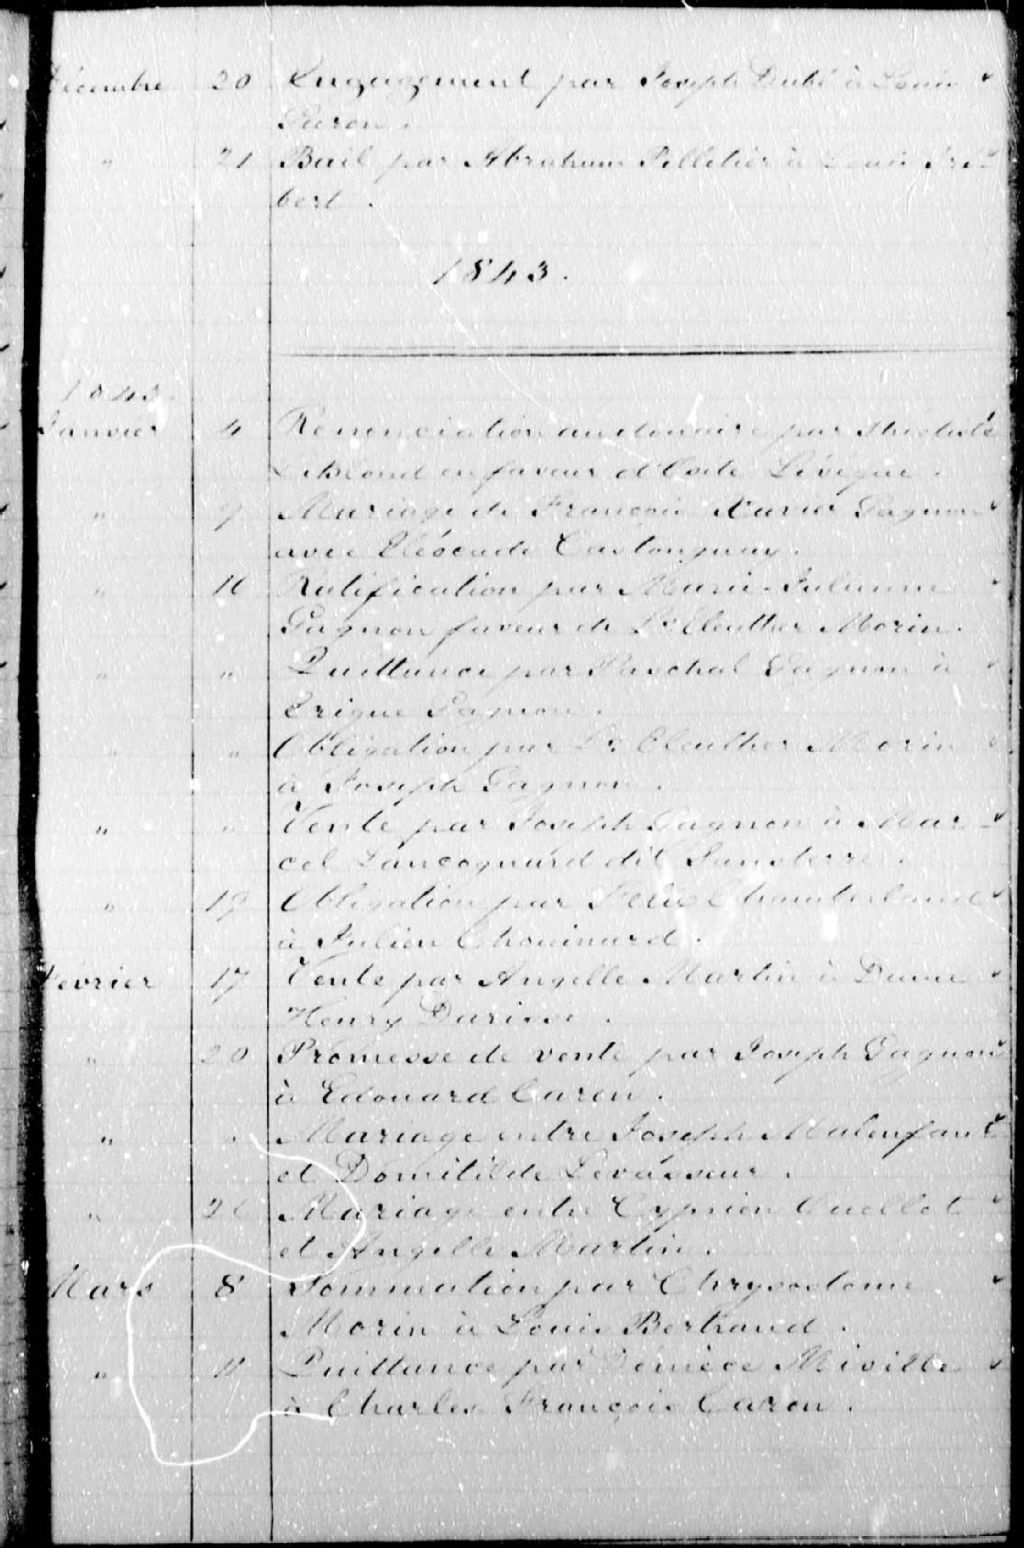 Décembre 20 Engagement par Joseph Dubé à Louis
Paron.
" 21 Bail par Abraham Pelletier à Louis Fré-
bert.
1843.
1843.
Janvier 4 Renonciation au douaire par Théotiste
LeBlond en faveur d'Osite Lévêque.
" 9 Mariage de François Xavier Gagnon
avec Eléocade Castonguay.
" 16 Ratification par Marie-Julienne
Gagnon faveur de Ls Eleuther Morin.
" " Quittance par Paschal Gagnon à
Erique Gagnon.
" " Obligation par Ls Eleuther Morin
à Joseph Gagnon.
" " Vente par Joseph Gagnon à Mar-
cel Lancognard dit Santerre.
" 19 Obligation par Felix Chamberland
à Julien Chouinard.
Février 17 Vente par Angelle Martin à Dame
Henry Darisse.
" 20 Promesse de vente par Joseph Gagnon
à Edouard Caron.
" " Mariage entre Joseph Malenfant
et Domitilde Levasseur.
" 26 Mariage entre Cyprien Ouellet
et Angelle Martin.
Mars 8 Sommation par Chrysostome
Morin à Louis Bertrand.
" 11 Quittance par Miville
à Charles François Caron.